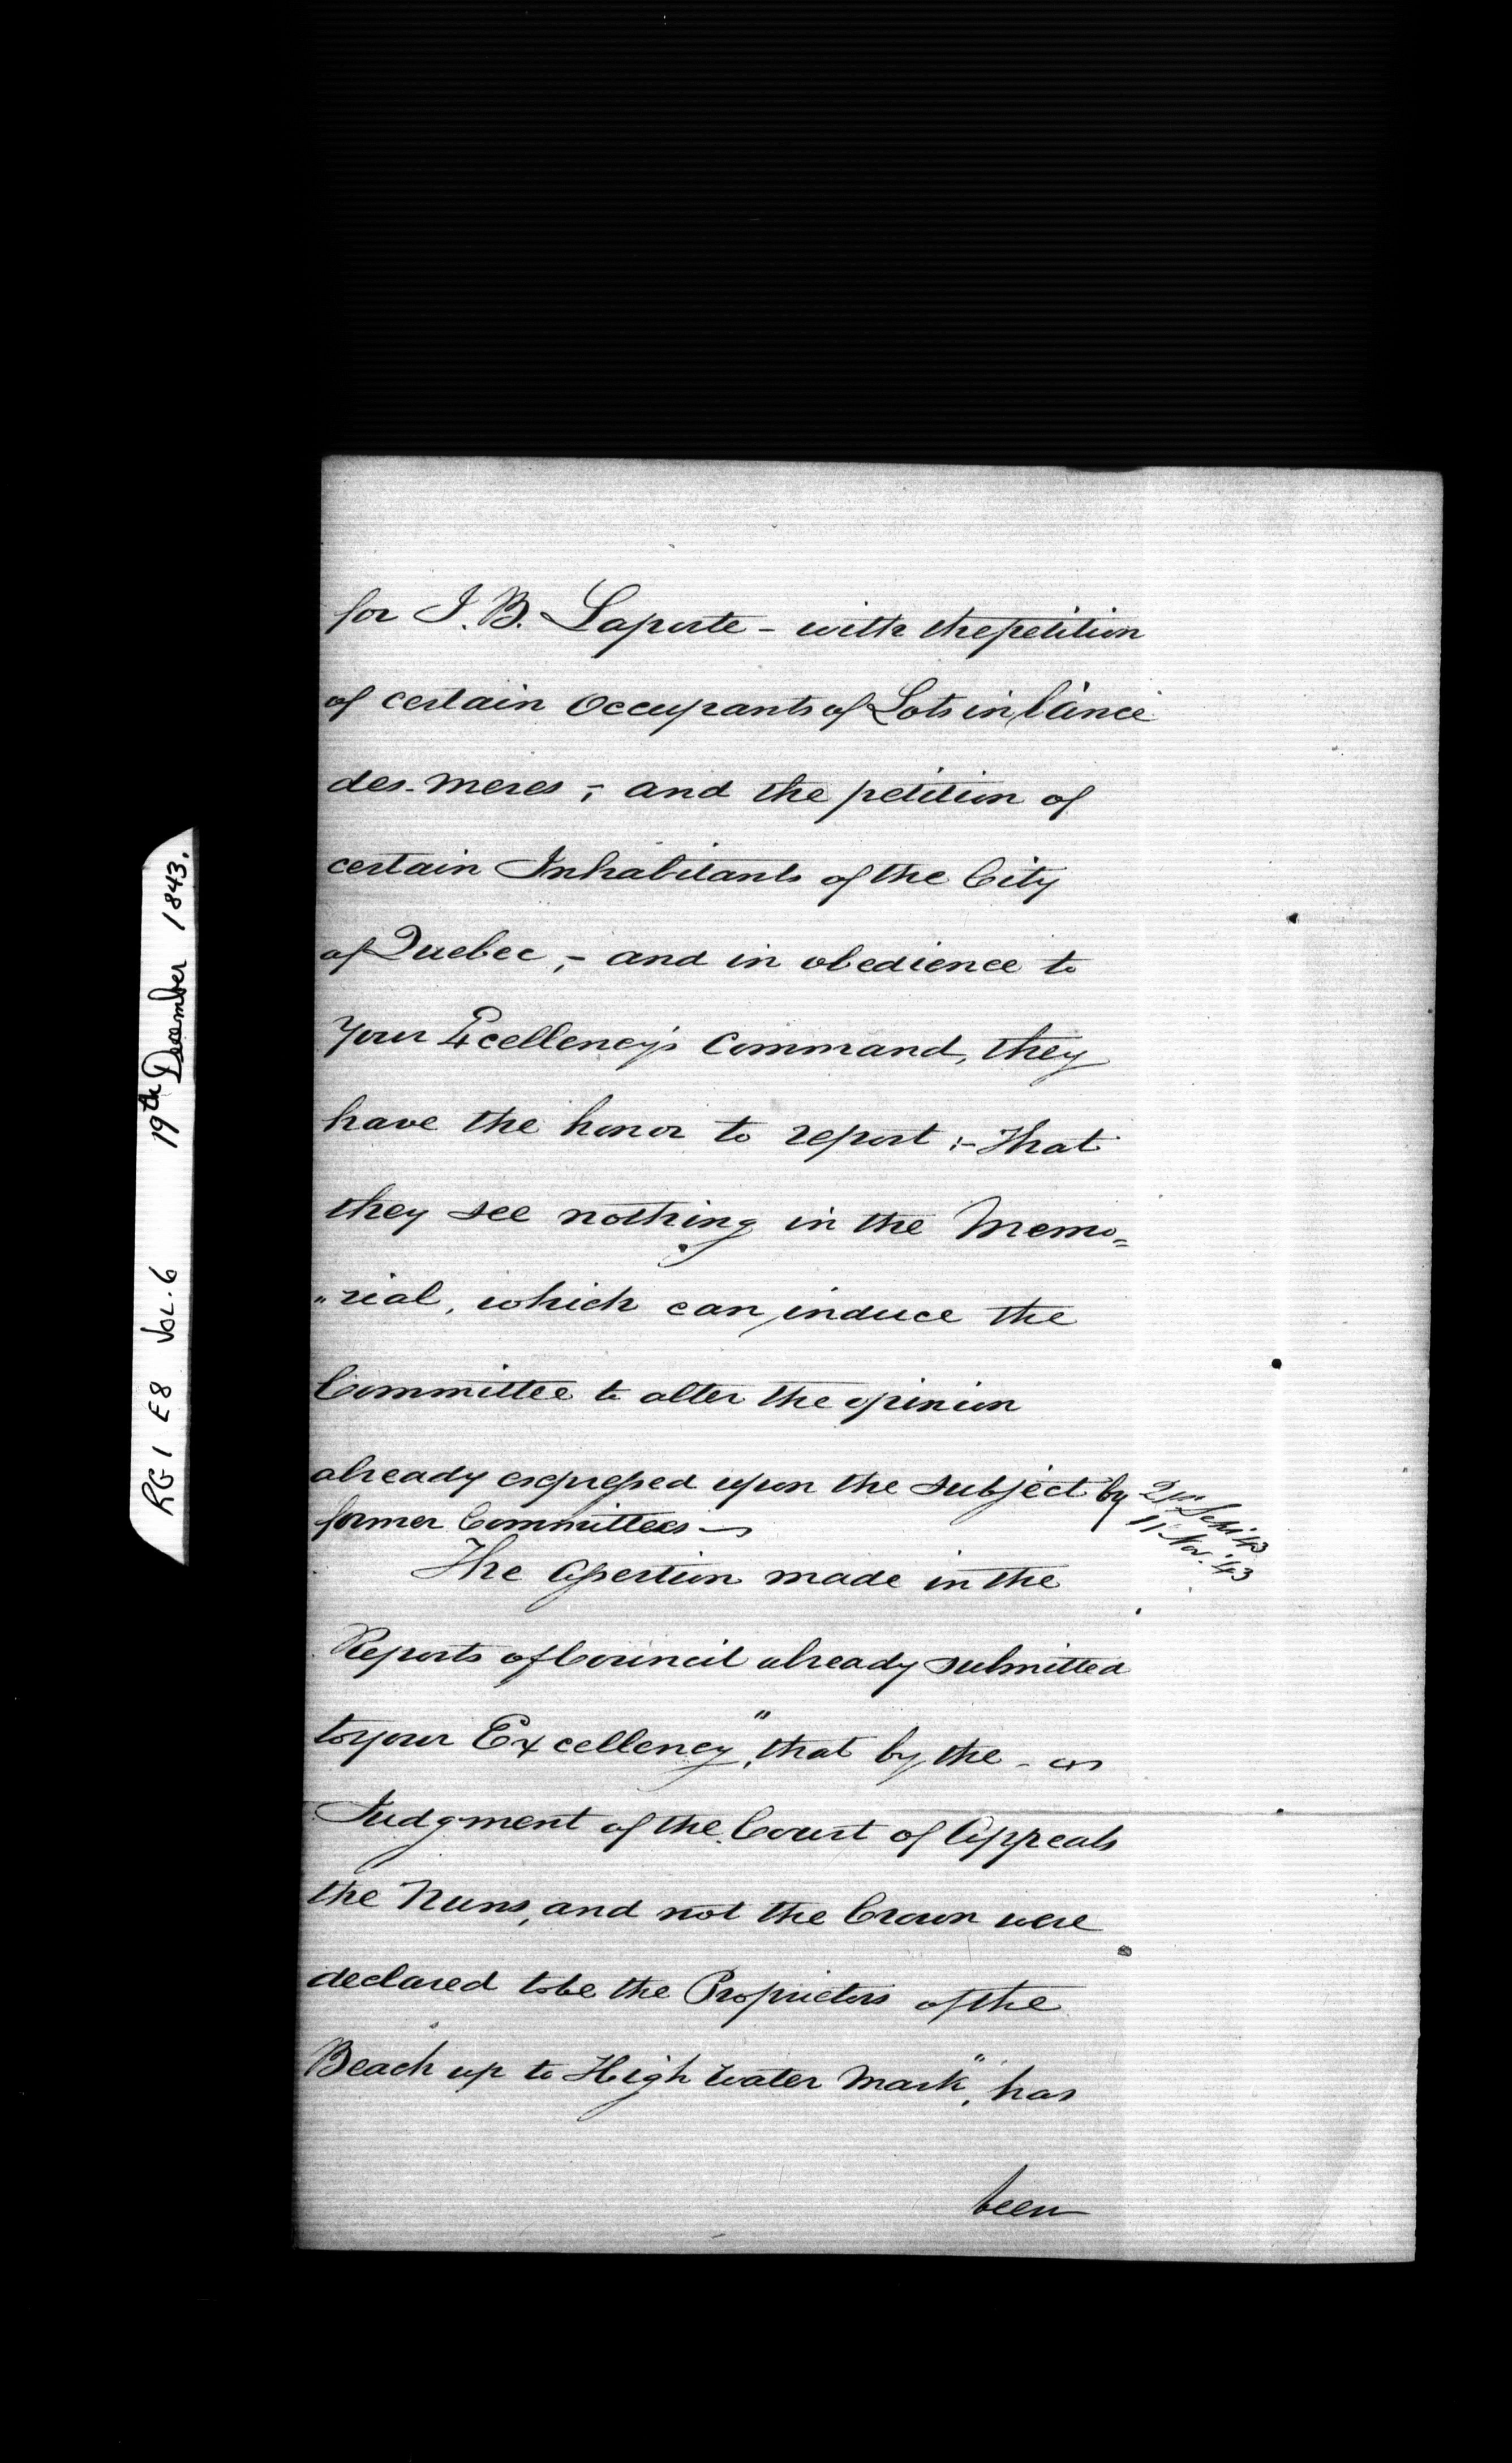 RG1 E8 VOL. 6 19th December 1843.
for J. B. Laporte - with the petition
of certain Occupants of Lots in l'ance
des-meres ; - and the petition of
certain Inhabitants of the City
of Quebec ; - and in obedience to
Your Excellency's Command, they
have the honor to report :- That
they see nothing in the Memo=
"rial, which can induce the
Committee to alter the opinion
already expressed upon the subject by
former Committees -
11 Nov. '43
The Assertion made in the
Reports of Council already submitted
to your Excellency, "that by the -
Judgment of the Court of Appeals
the Nuns, and not the Crown were
declared to be the Proprietors of the
Beach up to High water Mark", has
been